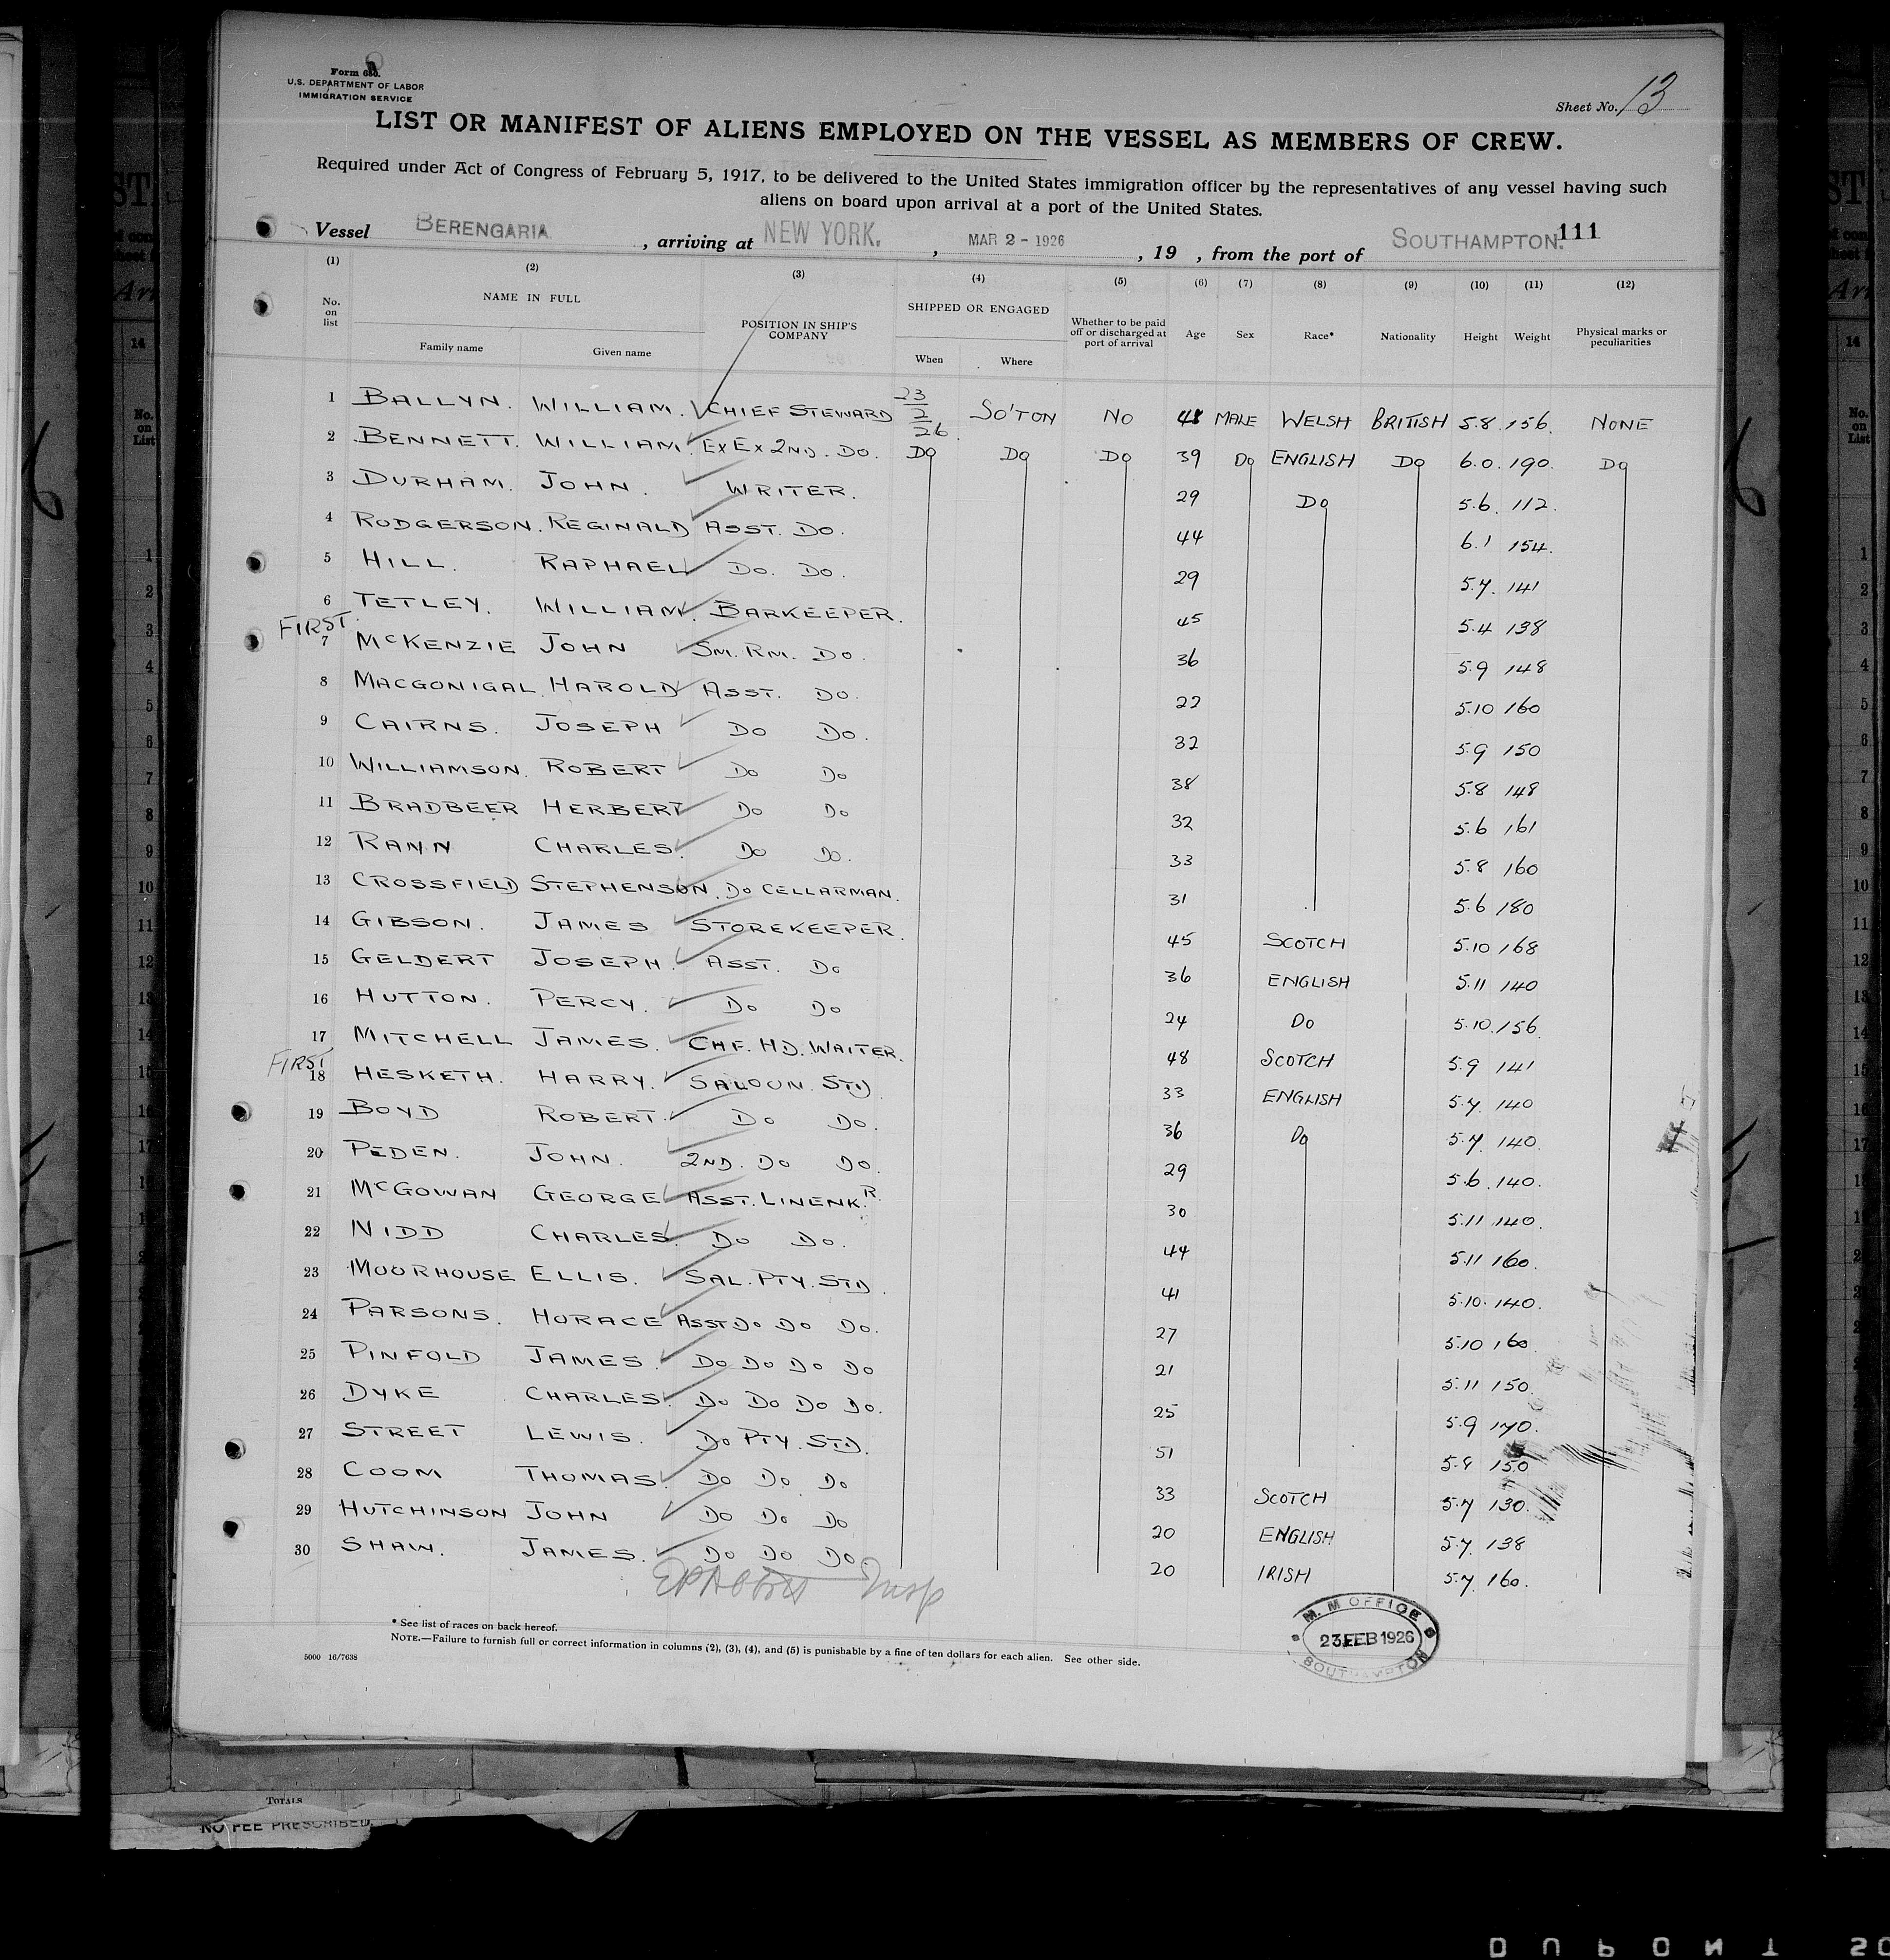 Form 680.
U.S. DEPARTMENT OF LABOR
IMMIGRATION SERVICE
Sheet No. 13
LIST OR MANIFEST OF ALIENS EMPLOYED ON THE VESSEL AS MEMBERS OF CREW.
Required under Act of Congress of February 5, 1917, to be delivered to the United States immigration officer by the representatives of any vessel having such
aliens on board upon arrival at a port of the United States.
Vessel BERENGARIA, arriving at NEW YORK., MAR 2 - 1926, 19 , from the port of SOUTHAMPTON. 111
(1) (2) (3) (4) (5) (6) (7) (8) (9) (10) (11) (12)
No. on list NAME IN FULL Family name Given name POSITION IN SHIP'S COMPANY SHIPPED OR ENGAGED When Where Whether to be paid off or discharged at port of arrival Age Sex Race* Nationality Height Weight Physical marks or peculiarities
1 BALLYN. WILLIAM. CHIEF STEWARD 23/2/26. SO'TON NO 48 MALE WELSH BRITISH 5.8. 156. NONE
2 BENNETT. WILLIAM. EX EX 2ND. DO. DO DO DO 39 DO ENGLISH DO 6.0. 190. DO
3 DURHAM. JOHN. WRITER. 29 DO 5.6. 112.
4 RODGERSON. REGINALD ASST. DO. 44 6.1 154.
5 HILL. RAPHAEL DO. DO. 29 5.7. 141
6 TETLEY. WILLIAM. BARKEEPER. 45 5.4 138
FIRST.
7 McKENZIE JOHN SM. RM. DO. 36 5.9 148
8 MACGONIGAL. HAROLD ASST. DO. 22 5.10 160
9 CAIRNS. JOSEPH DO DO. 32 5.9 150
10 WILLIAMSON. ROBERT DO DO 38 5.8 148
11 BRADBEER HERBERT DO DO 32 5.6 161
12 RANN CHARLES. DO DO. 33 5.8 160
13 CROSSFIELD STEPHENSON. DO CELLARMAN. 31 5.6 180
14 GIBSON. JAMES STOREKEEPER. 45 SCOTCH 5.10 168
15 GELDERT JOSEPH. ASST. DO 36 ENGLISH 5.11 140
16 HUTTON. PERCY. DO DO 24 DO 5.10. 156.
17 MITCHELL JAMES. CHF. HD. WAITER. 48 SCOTCH 5.9 141
FIRST
18 HESKETH. HARRY. SALOON. STD 33 ENGLISH 5.7. 140
19 BOYD ROBERT. DO DO. 36 DO 5.7. 140.
20 PEDEN. JOHN. 2ND. DO DO. 29 5.6. 140.
21 McGOWAN GEORGE ASST. LINENKR. 30 5.11 140.
22 NIDD CHARLES. DO DO. 44 5.11 160.
23 MOORHOUSE ELLIS. SAL. PTY. STD. 41 5.10. 140.
24 PARSONS. HORACE ASST DO DO DO. 27 5.10 160
25 PINFOLD JAMES. DO DO DO DO 21 5.11 150
26 DYKE CHARLES. DO DO DO DO. 25 5.9 170.
27 STREET LEWIS. DO PTY. STD. 51 5.8 150
28 COOM THOMAS. DO DO DO 33 SCOTCH 5.7 130.
29 HUTCHINSON JOHN DO DO DO 20 ENGLISH 5.7. 138
30 SHAW. JAMES. DO DO DO. 20 IRISH 5.7. 160.
Insp
* See list of races on back hereof.
NOTE.—Failure to furnish full or correct information in columns (2), (3), (4), and (5) is punishable by a fine of ten dollars for each alien. See other side.
5000 16/7638
M. M OFFICE
23 FEB 1926
SOUTHAMPTON
TOTALS
NO FEE PRESCRIBED.
DUPONT